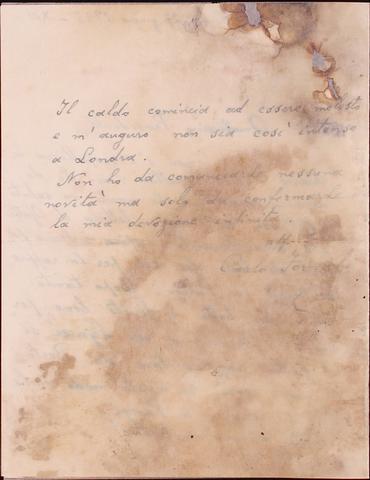 Il caldo comincia ad essere molesto
e m'auguro non sia così intenso
a Londra.
Non ho da comunicarle nessuna
novità ma solo da confermarle
la mia devozione infinita.
aff.
Carlo